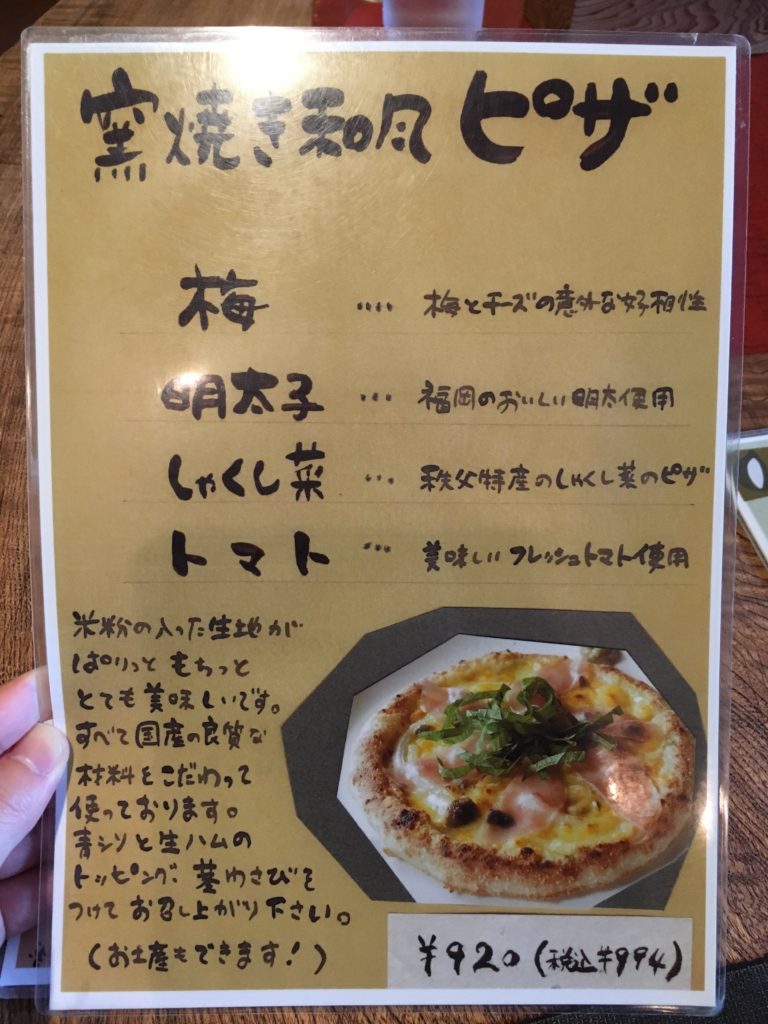 窯焼き和風ピザ
梅 ‥‥ 梅とチーズの意外な好相性
明太子 ‥‥ 福岡のおいしい明太使用
しゃくし菜 ‥‥ 秩父特産のしゃくし菜のピザ
トマト ‥‥ 美味しいフレッシュトマト使用
米粉の入った生地が
ぱりっともちっと
とても美味しいです。
すべて国産の良質な
材料をこだわって
使っております。
青シソと生ハムの
トッピング、茎わさびを
つけてお召し上がり下さい。
(お土産もできます!)
¥920(税込¥994)